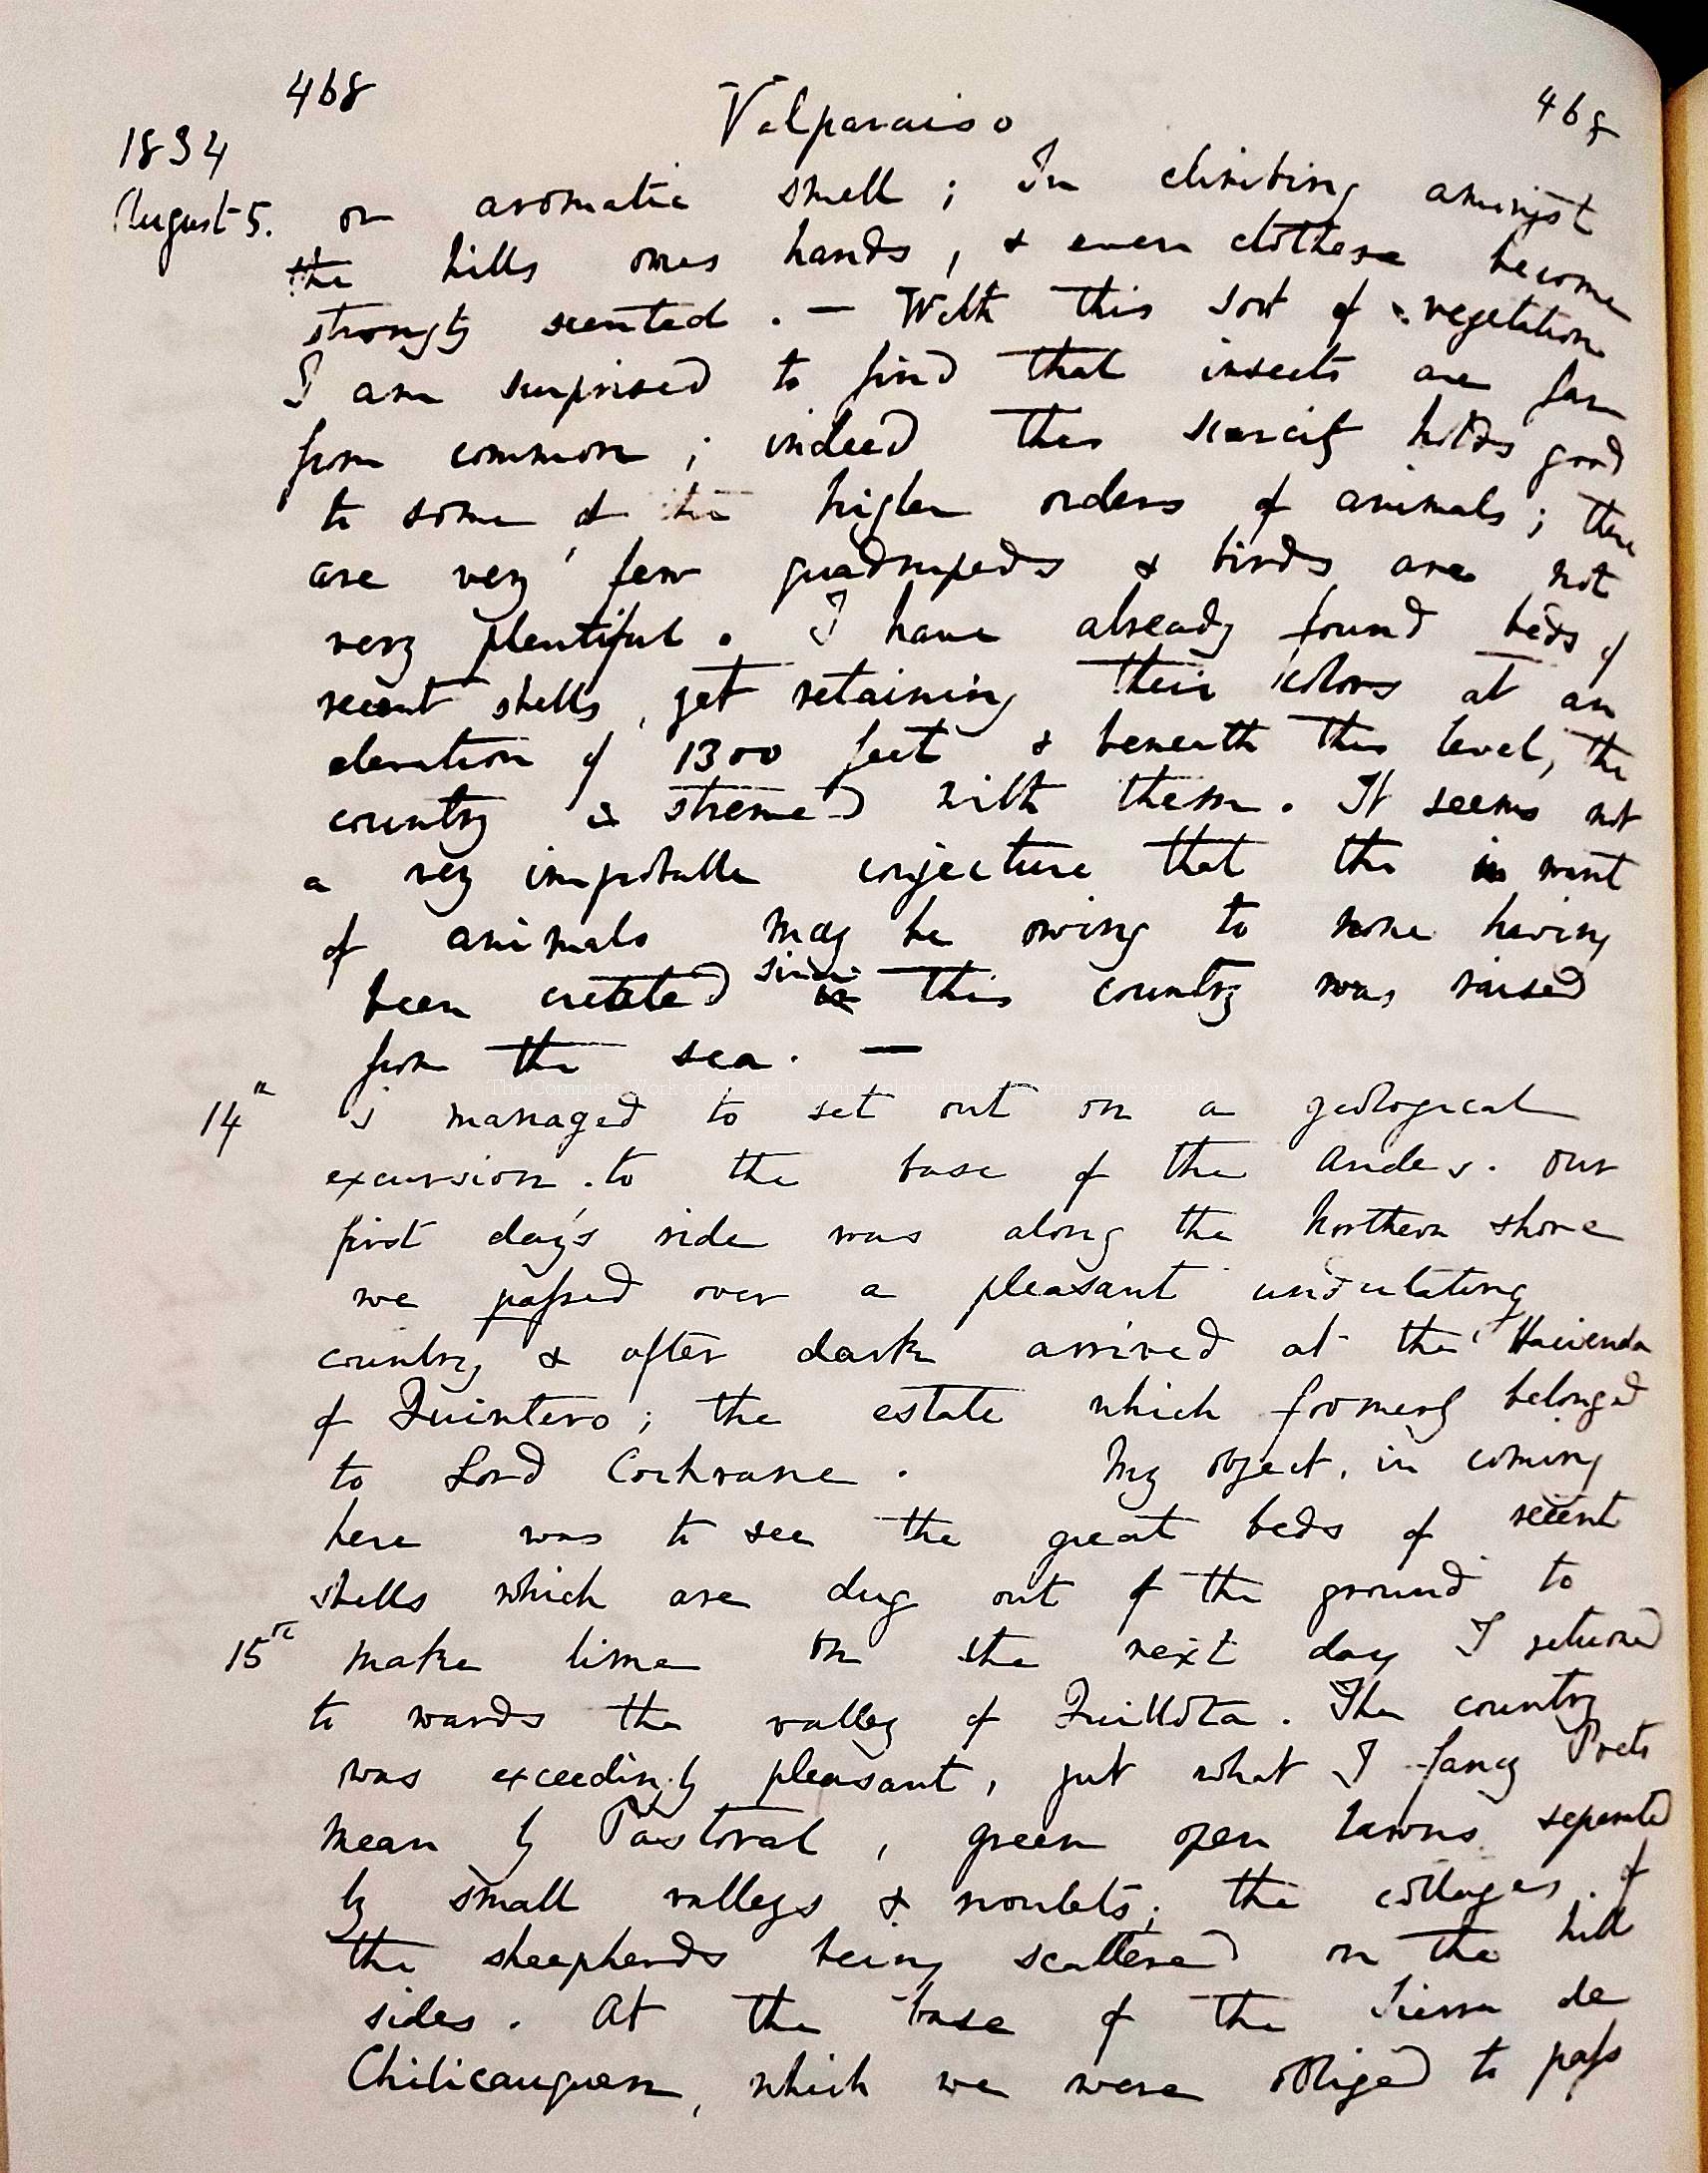 468 Valparaiso 468
1834
August 5. or aromatic smell ; In climbing amongst
the hills ones hands, & even clothese become
strongly scented . — With this sort of vegetation
I am surprised to find that insects are far
from common ; indeed this scarcity holds good
to some of the higher orders of animals ; there
are very few quadrupeds & birds are not
very plentiful . I have already found beds of
recent shells, yet retaining their colors at an
elevation of 1300 feet & beneath this level, the
country is strewed with them . It seems not
a very improbable conjecture that this in want
of animals may be owing to none having
been created since in this country was raised
from the sea . —
14th I managed to set out on a geological
excursion . to the base of the Andes . Our
first day's ride was along the Northern shore
we passed over a pleasant undulating
country & after dark arrived at the Hacienda
of Quintero ; the estate which formerly belonged
to Lord Cochrane . My object, in coming
here was to see the great beds of recent
shells which are dug out of the ground to
15th make lime On the next day I returned
to wards the valley of Quillota . The country
was exceedingly pleasant, just what I fancy Poets
mean by Pastoral , green open lawns separated
by small valleys & rivulets ; the cottages . of
the sheepherds being scattered on the hill
sides . At the base of the Sierra de
Chilicauquen, which we were obliged to pass
The Complete Work of Charles Darwin Online